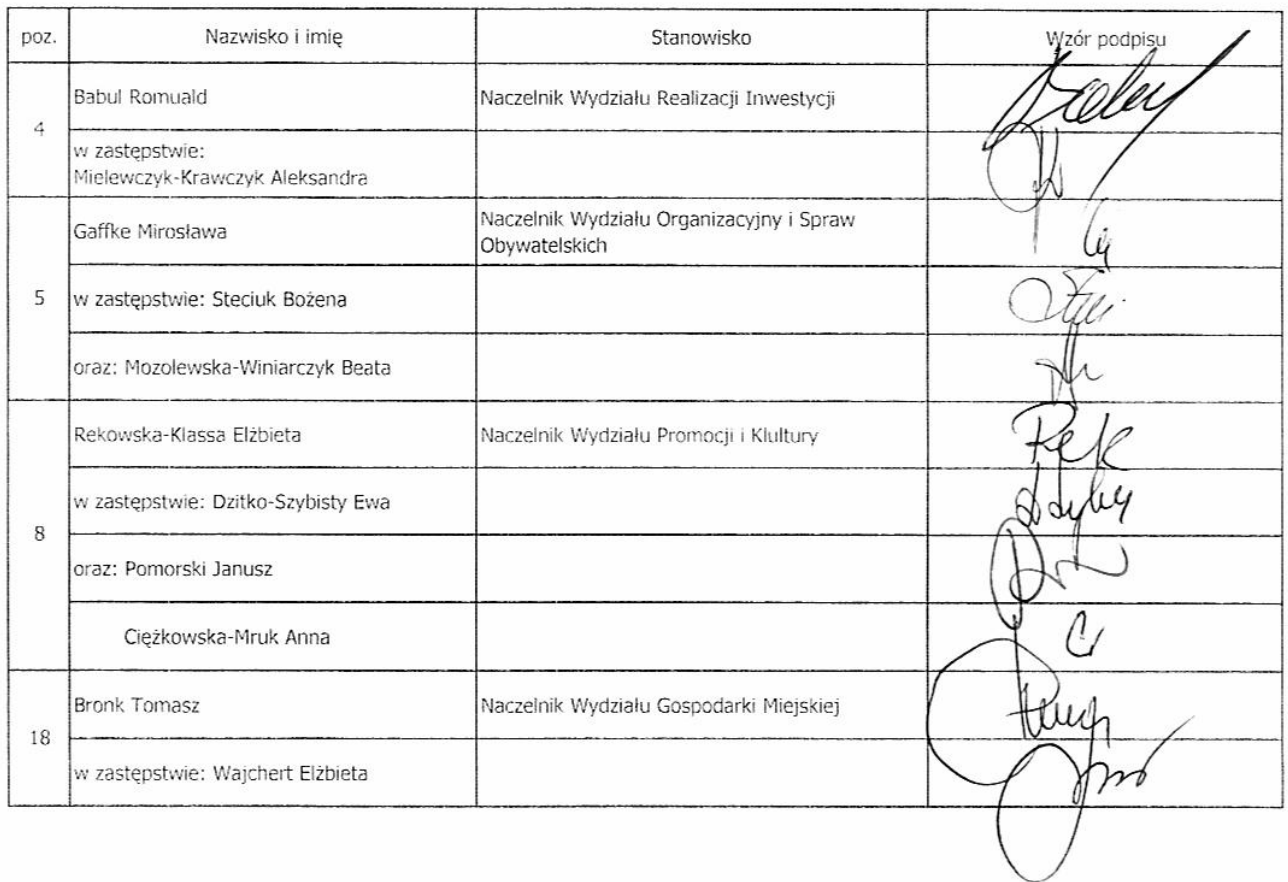 poz. Nazwisko i imię Stanowisko Wzór podpisu
4
Babul Romuald Naczelnik Wydziału Realizacji Inwestycji
w zastępstwie:
Mielewczyk-Krawczyk Aleksandra
5
Gaffke Mirosława Naczelnik Wydziału Organizacyjny i Spraw
Obywatelskich
w zastępstwie: Steciuk Bożena
oraz: Mozolewska-Winiarczyk Beata
8
Rekowska-Klassa Elżbieta Naczelnik Wydziału Promocji i Klultury
w zastępstwie: Dzitko-Szybisty Ewa
oraz: Pomorski Janusz
Ciężkowska-Mruk Anna
18
Bronk Tomasz Naczelnik Wydziału Gospodarki Miejskiej
w zastępstwie: Wajchert Elżbieta